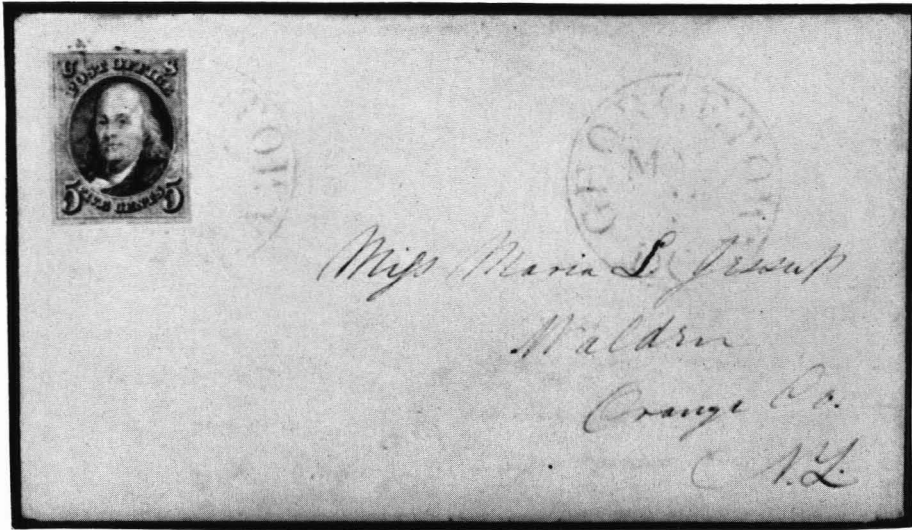 U S
POST OFFICE
5 FIVE CENTS 5
GEORGETOW
Miss Maria L. Jessup
Walden
Orange Co.
N.Y.